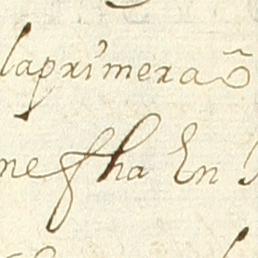 laprimera õ
nesha En